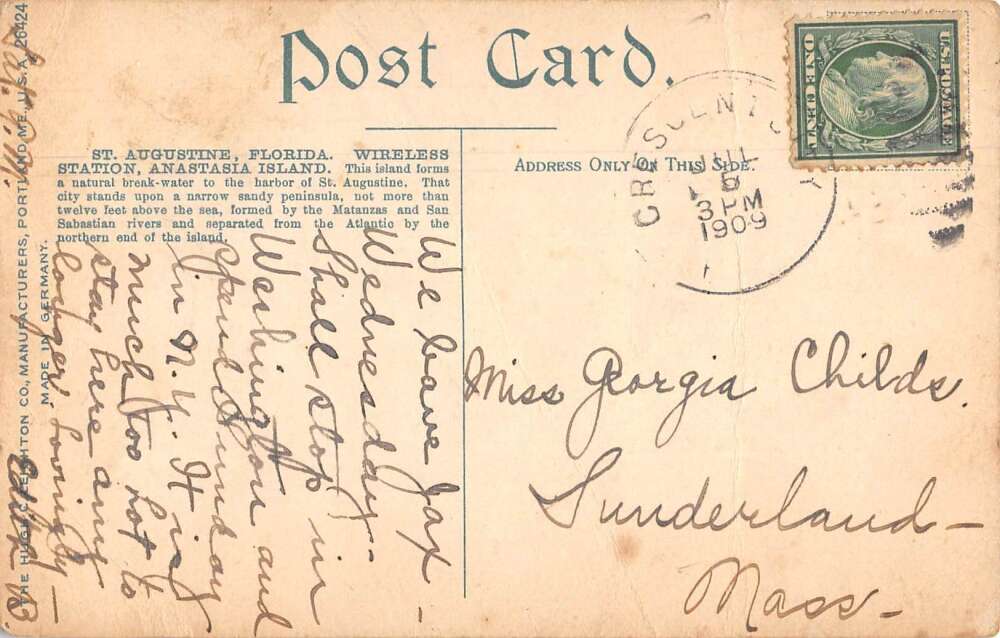 Post Card.
ST. AUGUSTINE, FLORIDA. WIRELESS
STATION, ANASTASIA ISLAND. This island forms
a natural break-water to the harbor of St. Augustine. That
city stands upon a narrow sandy peninsula, not more than
twelve feet above the sea, formed by the Matanzas and San
Sabastian rivers and separated from the Atlantic by the
northern end of the island.
ADDRESS ONLY ON THIS SIDE.
U.S. POSTAGE
ONE CENT
CRESCENT
JUL
5
3 PM
1909
We leave Jax-
Wednesday-
Shall stop in
Washington and
spend Sunday
in N.Y. It is
much too hot to
stay here any
longer. Lovingly-
Miss Georgia Childs.
Sunderland-
Mass-
THE HUGH C. LEIGHTON CO., MANUFACTURERS, PORTLAND, ME., U.S.A. 26424
MADE IN GERMANY.